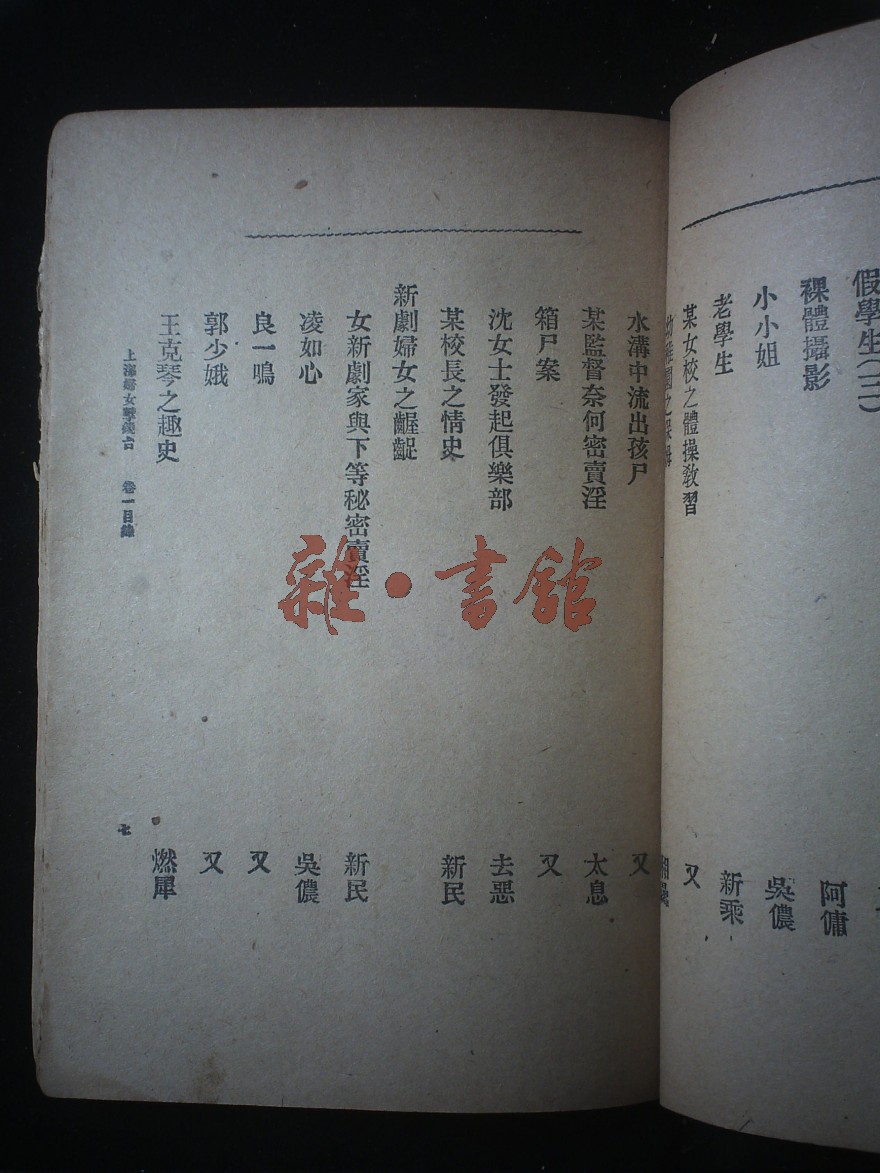 假學生(二)
裸體攝影 阿傭
小小姐 吳儂
老學生 新乘
某女校之體操教習 又
水溝中流出孩尸 又
某監督奈何密賣淫 太息
箱尸案 又
沈女士發起俱樂部 去惡
某校長之情史 新民
新劇婦女之齷齪
女新劇家與下等秘密賣淫 新民
凌如心 吳儂
良一鳴 又
郭少娥 又
王克琴之趣史 燃犀
上海婦女孽鏡台 卷一目錄 七
雜·書館